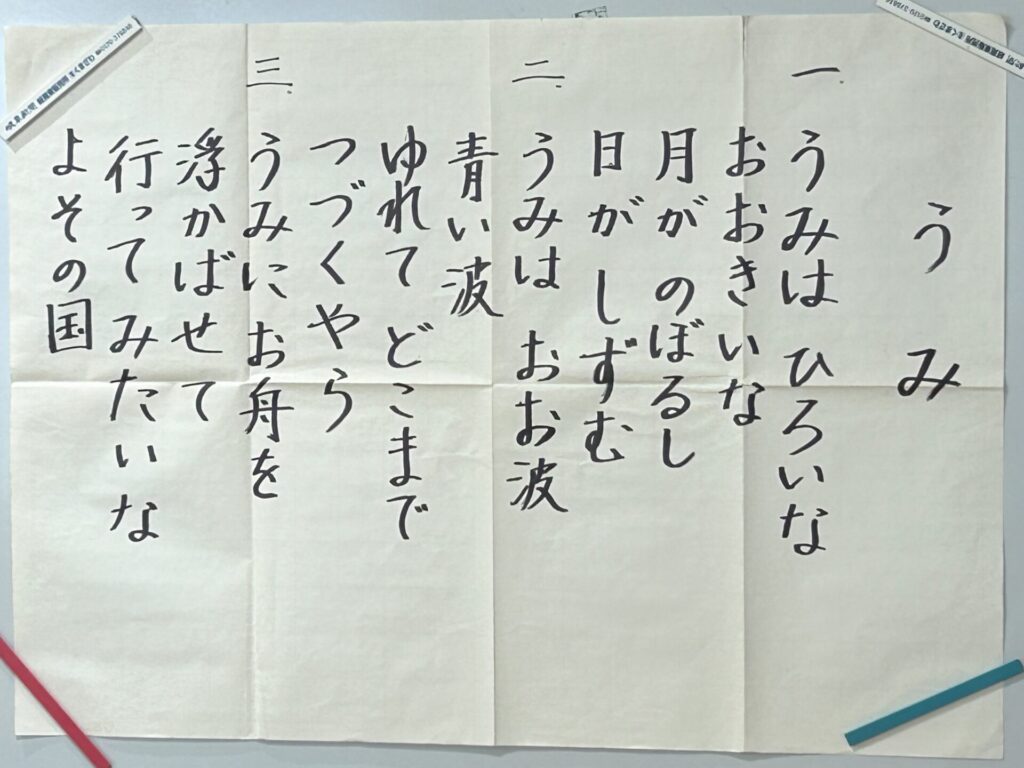 うみ
一.
うみは ひろいな
おおきいな
月が のぼるし
日が しずむ
二.
うみは おお波
青い波
ゆれて どこまで
つづくやら
三.
うみに お舟を
浮かばせて
行って みたいな
よその国